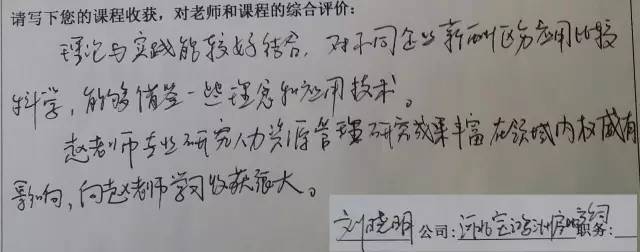 请写下您的课程收获，对老师和课程的综合评价：
理论与实践能较好结合，对不同企业薪酬区分应用比较
科学，能够借鉴一些理念和应用技术。
赵老师专业研究人力资源管理研究成果丰富在领域内权威有
影响，向赵老师学习收获很大。
刘晓明 公司：河北 职务：